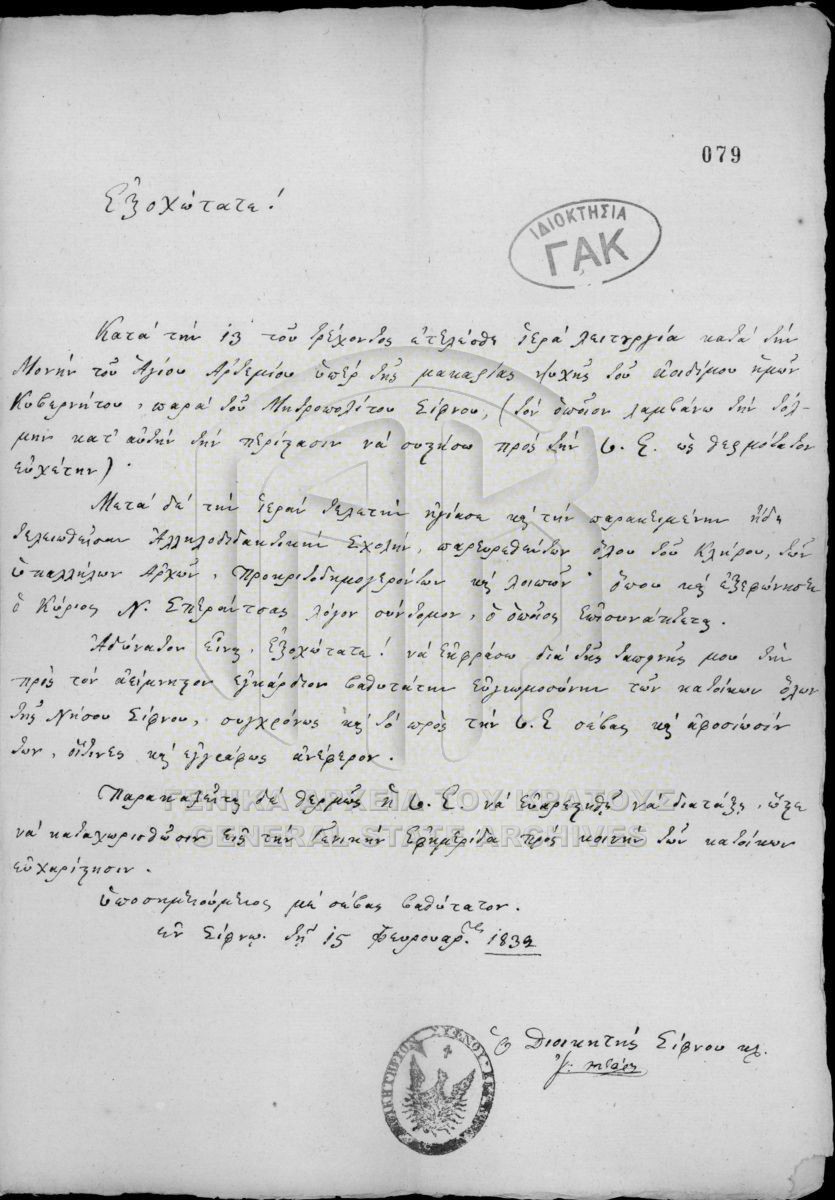 079
Ἐξοχώτατε!
ΙΔΙΟΚΤΗΣΙΑ
ΓΑΚ
Κατὰ τὴν 13 τοῦ τρέχοντος ἐτελέσθη ἱερὰ λειτουργία κατὰ τὴν
Μονὴν τοῦ Ἁγίου Ἀρτεμίου ὑπὲρ τῆς μακαρίας ψυχῆς τοῦ ἀοιδίμου ἡμῶν
Κυβερνήτου, παρὰ τοῦ Μητροπολίτου Σίφνου, (τὸν ὁποῖον λαμβάνω τὴν τόλ-
μην κατ' αὐτὴν τὴν περίστασιν νὰ συστήσω πρὸς τὴν Υ. Ε. ὡς θερμότατον
εὐχέτην).
Μετὰ δὲ τὴν ἱερὰν τελετὴν ἡγίασε καὶ τὴν παρακειμένην ἤδη
τελειωθεῖσαν Ἀλληλοδιδακτικὴν Σχολήν, παρευρεθέντων ὅλου τοῦ Κλήρου, τῶν
ὑπαλλήλων Ἀρχῶν, Προκριτοδημογερόντων καὶ λοιπῶν· ὅπου καὶ ἐξεφώνησε
ὁ Κύριος Ν. Σπεράντσας λόγον σύντομον, ὁ ὁποῖος ἐπισυνάπτεται.
Ἀδύνατον εἶναι, Ἐξοχώτατε! νὰ ἐκφράσω διὰ τῆς ταπεινῆς μου τὴν
πρὸς τὸν ἀείμνηστον ἐγκάρδιον βαθυτάτην εὐγνωμοσύνην τῶν κατοίκων ὅλων
τῆς Νήσου Σίφνου, συγχρόνως καὶ τὸ πρὸς τὴν Υ. Ε σέβας καὶ ἀφοσίωσίν
των, οἵτινες καὶ ἐγγράφως ἀνέφερον.
Παρακαλεῖται δὲ θερμῶς ἡ Υ. Ε. νὰ εὐαρεστηθῇ νὰ διατάξῃ, ὥστε
νὰ καταχωρισθῶσιν εἰς τὴν Γενικὴν Ἐφημερίδα πρὸς κοινὴν τῶν κατοίκων
εὐχαρίστησιν.
ὑποσημειούμενος μὲ σέβας βαθύτατον.
ἐν Σίφνῳ. τῇ 15 Φευρουαρ. 1832
Ὁ Διοικητὴς Σίφνου κλ.
ΓΕΝΙΚΑ ΑΡΧΕΙΑ ΤΟΥ ΚΡΑΤΟΥΣ
GENERAL STATE ARCHIVES